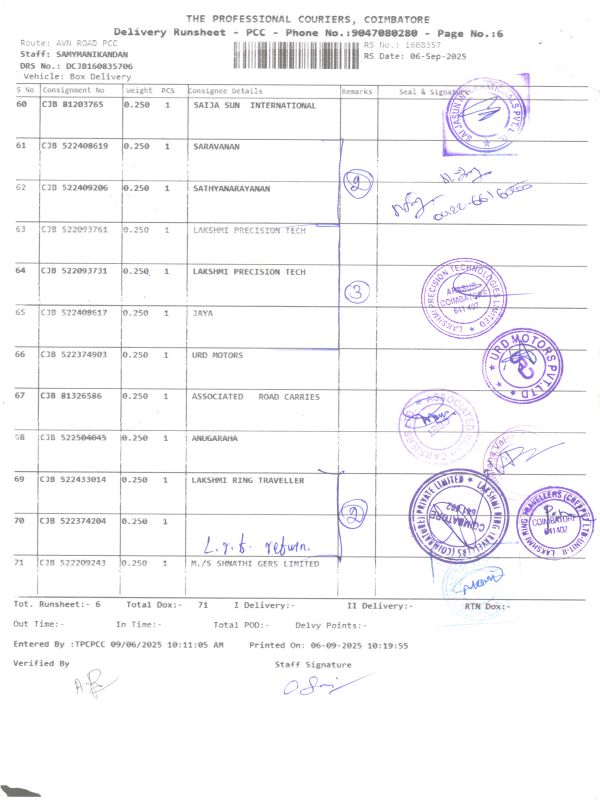 THE PROFESSIONAL COURIERS, COIMBATORE
Delivery Runsheet - PCC - Phone No.:9047080280 - Page No.:6
Route: AVN ROAD PCC
RS No.: 1608357
Staff: SAMYMANIKANDAN
RS Date: 06-Sep-2025
DRS No.: DCJB160835706
Vehicle: Box Delivery
S No Consignment No Weight PCS Consignee Details Remarks Seal & Signature
60 CJB 81203765 0.250 1 SAIJA SUN INTERNATIONAL
61 CJB 522408619 0.250 1 SARAVANAN
2
62 CJB 522409206 0.250 1 SATHYANARAYANAN
63 CJB 522093761 0.250 1 LAKSHMI PRECISION TECH
64 CJB 522093731 0.250 1 LAKSHMI PRECISION TECH
3
LAKSHMI PRECISION TECHNOLOGIES LIMITED
COIMBATORE
641 407
65 CJB 522408617 0.250 1 JAYA
66 CJB 522374903 0.250 1 URD MOTORS
URD MOTORS PVT. LTD
67 CJB 81326586 0.250 1 ASSOCIATED ROAD CARRIES
ASSOCIATED
68 CJB 522504045 0.250 1 ANUGARAHA
69 CJB 522433014 0.250 1 LAKSHMI RING TRAVELLER
2
LAKSHMI RING TRAVELLERS (COIMBATORE) PRIVATE LIMITED
COIMBATORE
LAKSHMI RING TRAVELLERS
COIMBATORE
641 402
70 CJB 522374204 0.250 1
return.
71 CJB 522209243 0.250 1 M./S SHNATHI GERS LIMITED
Tot. Runsheet:- 6 Total Dox:- 71 I Delivery:- II Delivery:- RTN Dox:-
Out Time:- In Time:- Total POD:- Delvy Points:-
Entered By :TPCPCC 09/06/2025 10:11:05 AM Printed On: 06-09-2025 10:19:55
Verified By Staff Signature